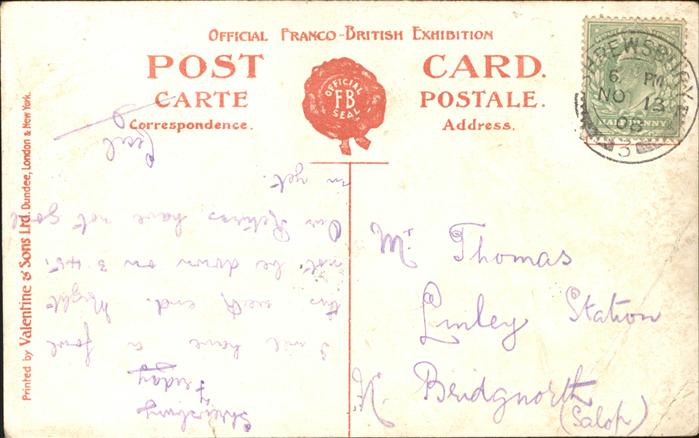 OFFICIAL FRANCO-BRITISH EXHIBITION
POST CARD.
CARTE POSTALE.
Correspondence. Address.
OFFICIAL
FB
SEAL
SHREWSBURY
6 PM
NO 13
08
3
HALFPENNY
Printed by Valentine & Sons Ltd. Dundee, London & New York.
Mr Thomas
Linley Station
Nr. Bridgnorth
(Salop)
Shrewsbury
Friday
I will have a fowl
this week end. Might
not be down on 3.45.
Our Returns have not gone
in yet.
Cecil